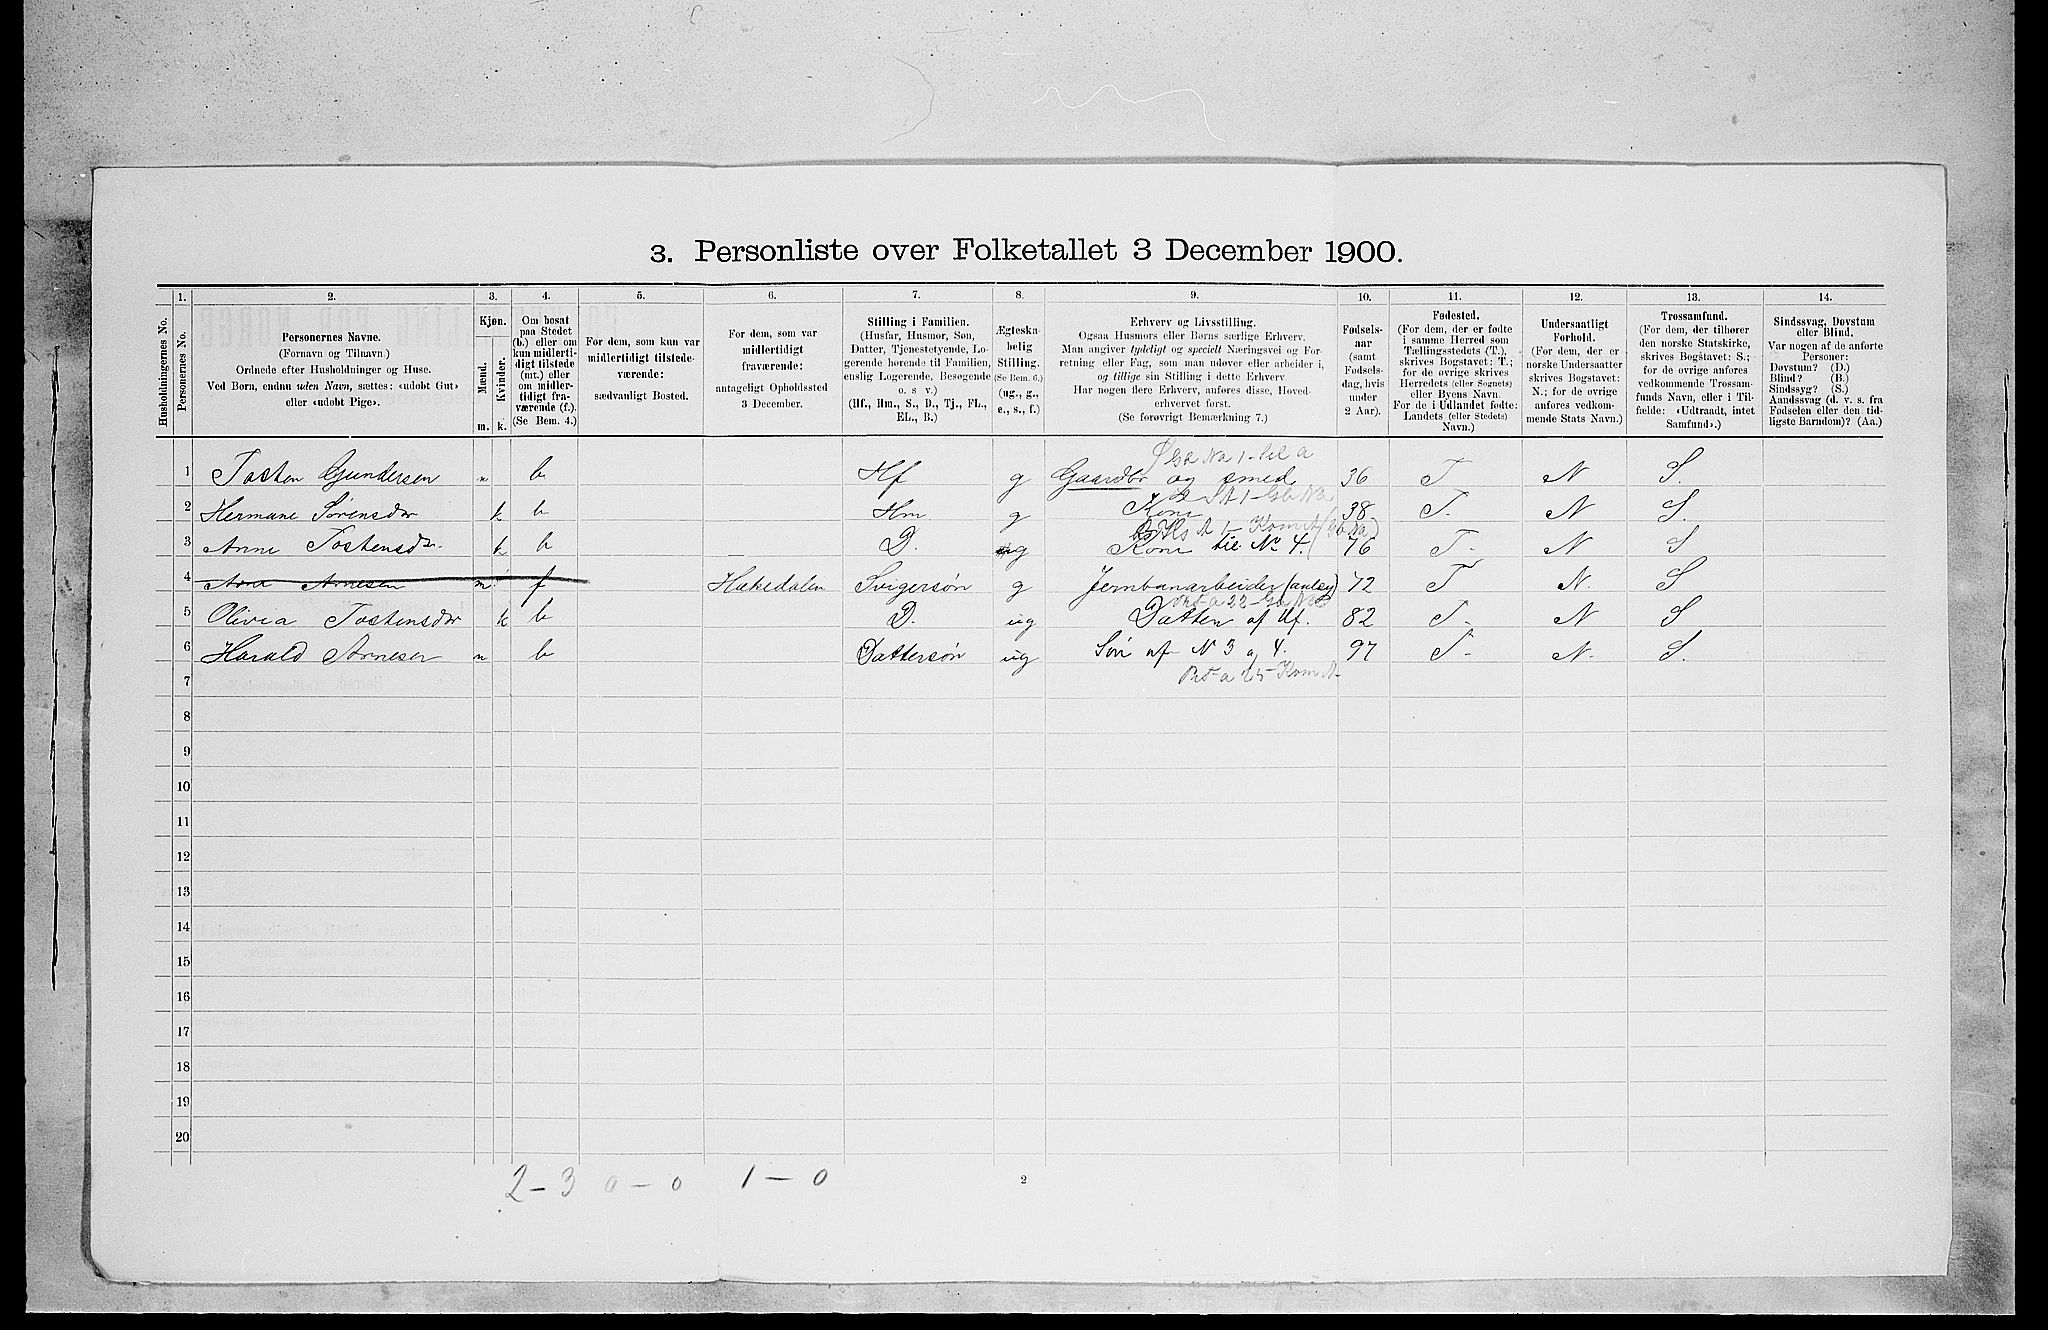 3. Personliste over Folketallet 3 December 1900.
Husholdningernes No.
1.
Personernes No.
2.
Personernes Navne.
(Fornavn og Tilnavn.)
Ordnede efter Husholdninger og Huse.
Ved Børn, endnu uden Navn, sættes: «udøbt Gut»
eller «udøbt Pige».
3.
Kjøn.
Mænd.
Kvinder.
m.
k.
4.
Om bosat
paa Stedet
(b.) eller om
kun midlerti-
digt tilstede
(mt.) eller
om midler-
tidigt fra-
værende (f.).
(Se Bem. 4.)
5.
For dem, som kun var
midlertidigt tilstede-
værende:
sædvanligt Bosted.
6.
For dem, som var
midlertidigt
fraværende:
antageligt Opholdssted
3 December.
7.
Stilling i Familien.
(Husfar, Husmor, Søn,
Datter, Tjenestetyende, Lo-
gerende hørende til Familien,
enslig Logerende, Besøgende
o. s. v.)
(Hf., Hm., S., D., Tj., FL.,
EL., B.)
8.
Ægteska-
belig
Stilling.
(Se Bem. 6.)
(ug., g.,
e., s., f.)
9.
Erhverv og Livsstilling.
Ogsaa Husmors eller Børns særlige Erhverv.
Man angiver tydeligt og specielt Næringsvei og For-
retning eller Fag, som man udøver eller arbeider i,
og tillige sin Stilling i dette Erhverv.
Har nogen flere Erhverv, anføres disse, Hoved-
erhvervet først.
(Se forøvrigt Bemærkning 7.)
10.
Fødsels-
aar
(samt
Fødsels-
dag, hvis
under
2 Aar).
11.
Fødested.
(For dem, der er fødte
i samme Herred som
Tællingsstedets (T.),
skrives Bogstavet: T.;
for de øvrige skrives
Herredets (eller Sognets)
eller Byens Navn.
For de i Udlandet fødte:
Landets (eller Stedets)
Navn.)
12.
Undersaatligt
Forhold.
(For dem, der er
norske Undersaatter
skrives Bogstavet:
N.; for de øvrige
anføres vedkom-
mende Stats Navn.)
13.
Trossamfund.
(For dem, der tilhører
den norske Statskirke,
skrives Bogstavet: S.;
for de øvrige anføres
vedkommende Trossam-
funds Navn, eller i Til-
fælde: «Udtraadt, intet
Samfund».)
14.
Sindssvag, Døvstum
eller Blind.
Var nogen af de anførte
Personer:
Døvstum? (D.)
Blind? (B.)
Sindssyg? (S.)
Aandssvag (d. v. s. fra
Fødselen eller den tid-
ligste Barndom)? (Aa.)
1 Tosten Gundersen m b Hf g Gaardbr og smed 36 T N S.
2 Hermane Sørensdtr k b Hm g Kone 38 T. N S.
3 Anne Tostensdtr. k b D. g Kone til No 4. 76 T. N S
4 Arne Arnesen m f Hakedalen Svigersøn g Jernbanarbeider (anlæg) 72 T N. S
5 Olivia Tostensdtr k b D. ug Datter af Hf. 82 T. N S
6 Harald Arnesen m b Dattersøn ug Søn af N 3 og 4. 97 T. N. S.
7
8
9
10
11
12
13
14
15
16
17
18
19
20
2 – 3 0 – 0 1 – 0
2